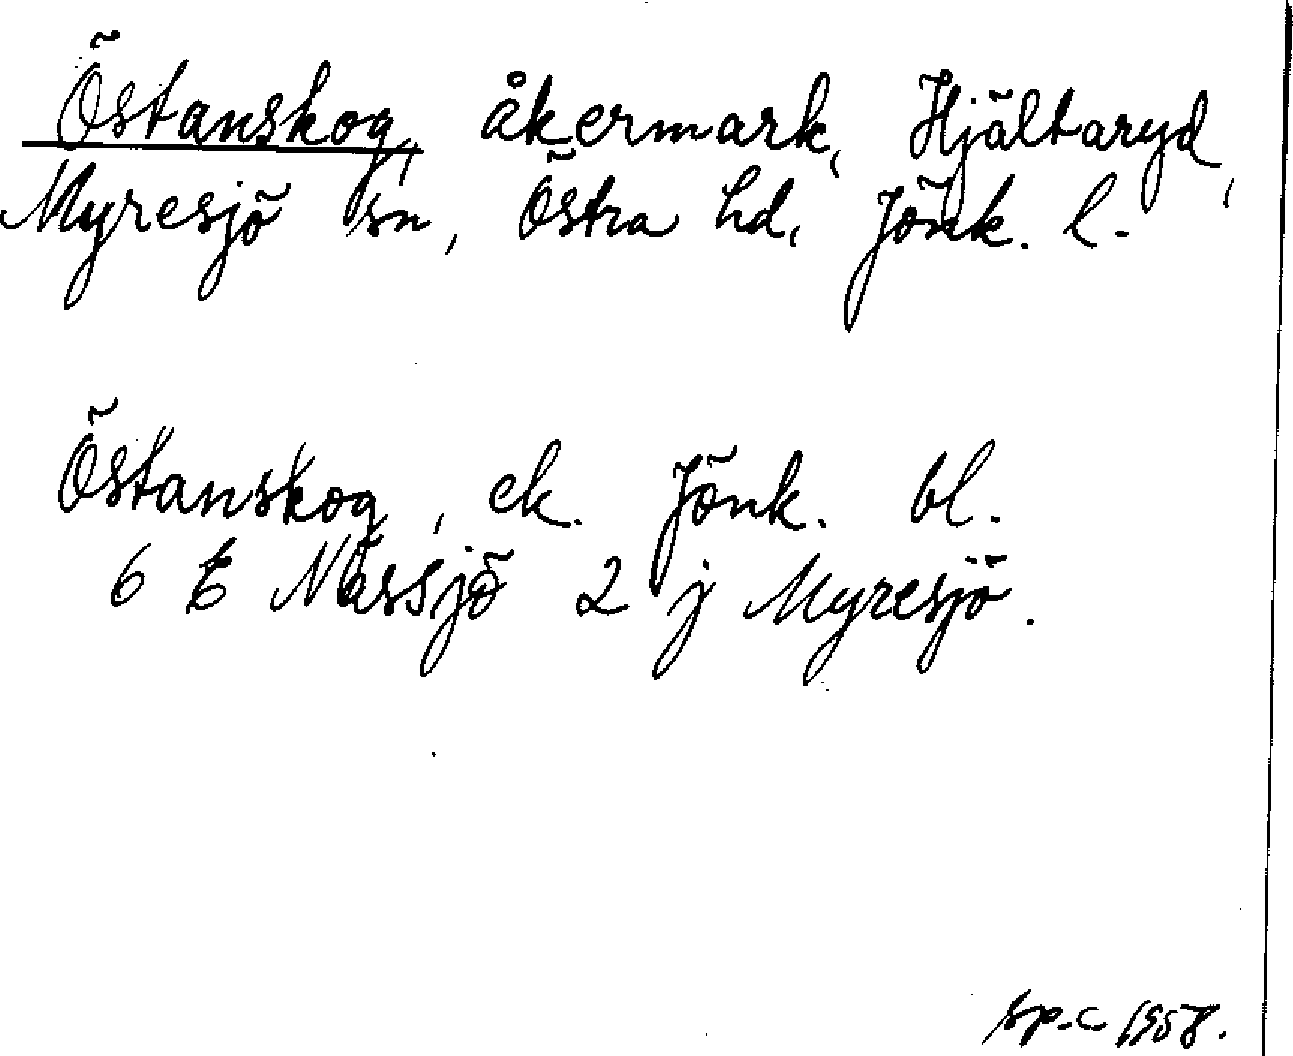 Östanskog, åkermark, Hjältaryd,
Myresjö sn, Östra hd, Jönk. l.
Östanskog, ek. Jönk. bl.
6 E Nässjö 2 j Myresjö.
sp.c 1958.